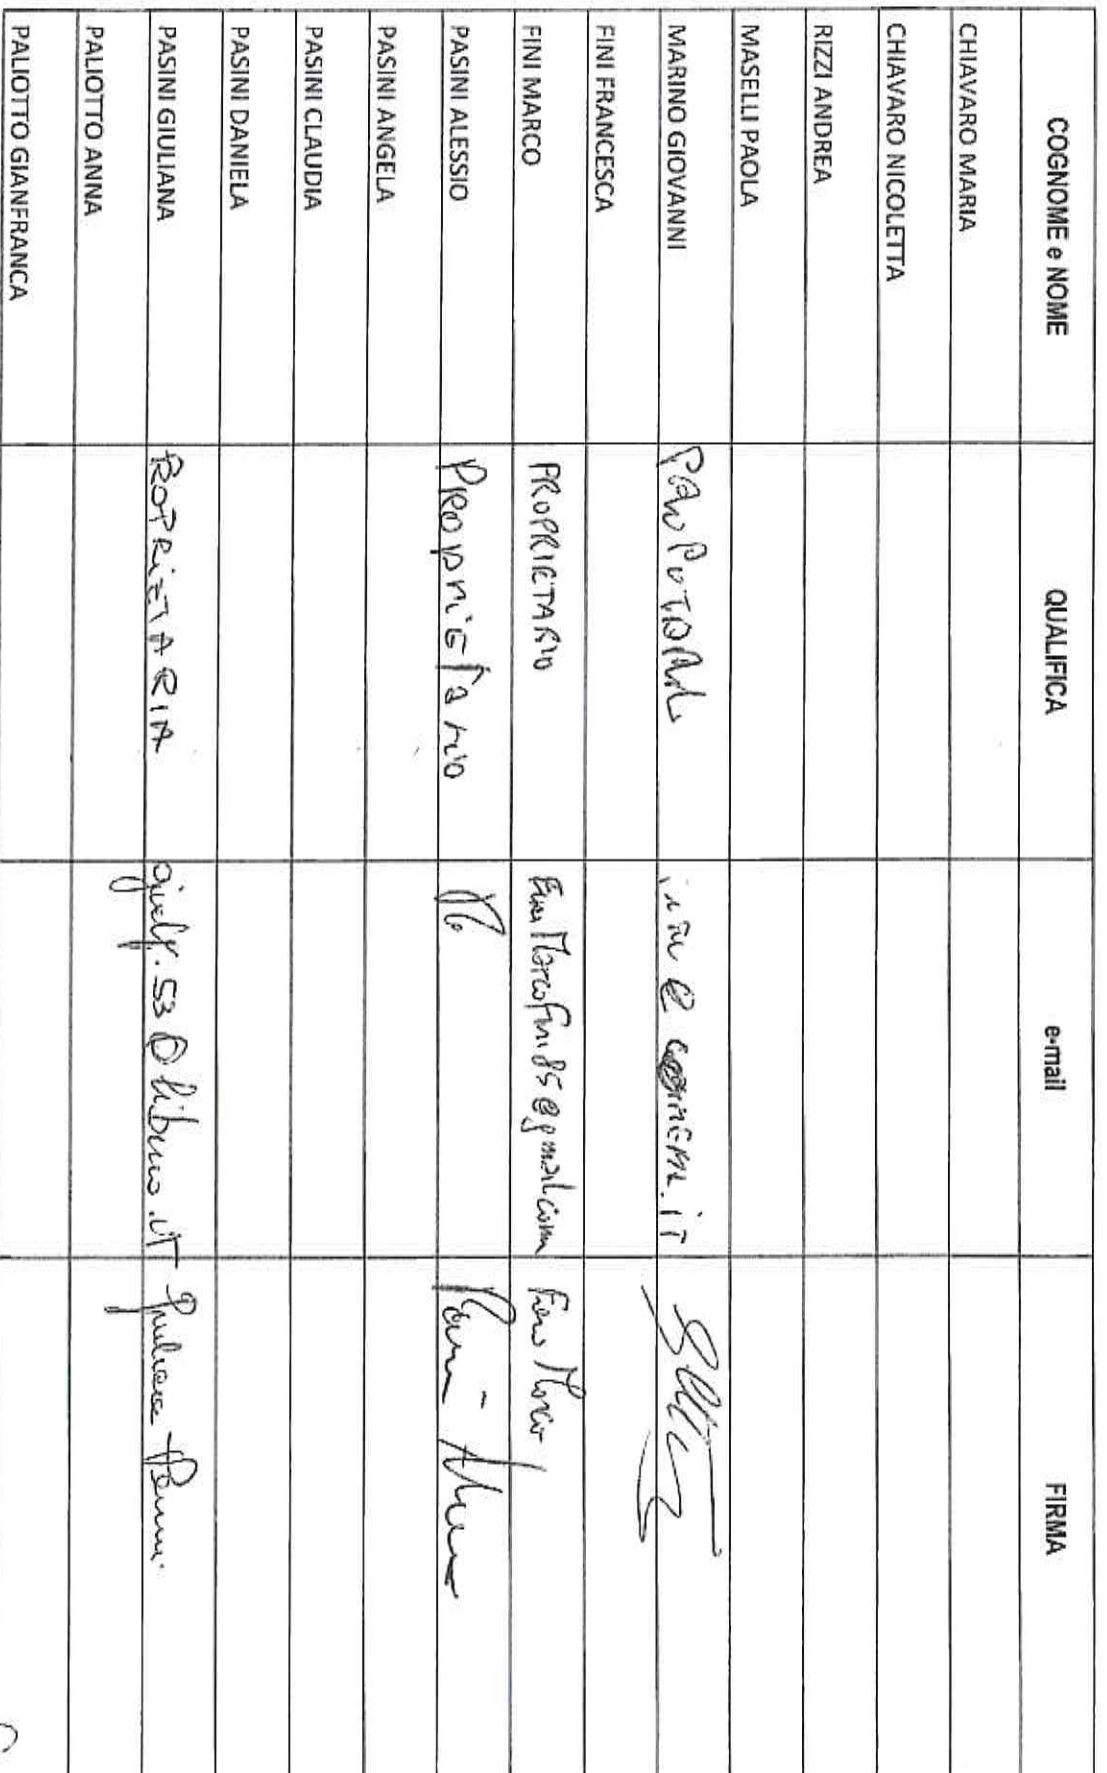 COGNOME e NOME QUALIFICA e-mail FIRMA
CHIAVARO MARIA
CHIAVARO NICOLETTA
RIZZI ANDREA
MASELLI PAOLA
MARINO GIOVANNI
FINI FRANCESCA
FINI MARCO PROPRIETARIO Fini Marco
PASINI ALESSIO Proprietario
PASINI ANGELA
PASINI CLAUDIA
PASINI DANIELA
PASINI GIULIANA PROPRIETARIA Giuliana Pasini
PALIOTTO ANNA
PALIOTTO GIANFRANCA